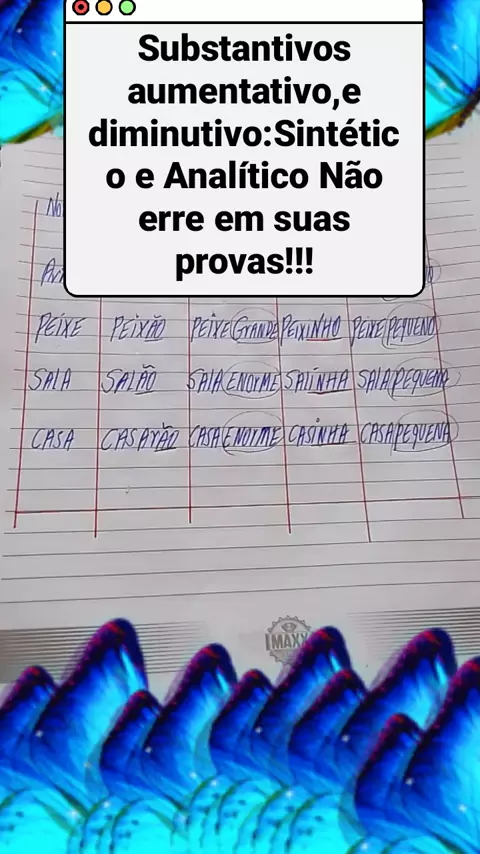 Substantivos
aumentativo,e
diminutivo:Sintétic
o e Analítico Não
erre em suas
provas!!!
PEIXE PEIXÃO PEIXE GRANDE PEIXINHO PEIXE PEQUENO
SALA SALÃO SALA ENORME SALINHA SALA PEQUENA
CASA CASARÃO CASA ENORME CASINHA CASA PEQUENA
MAXX